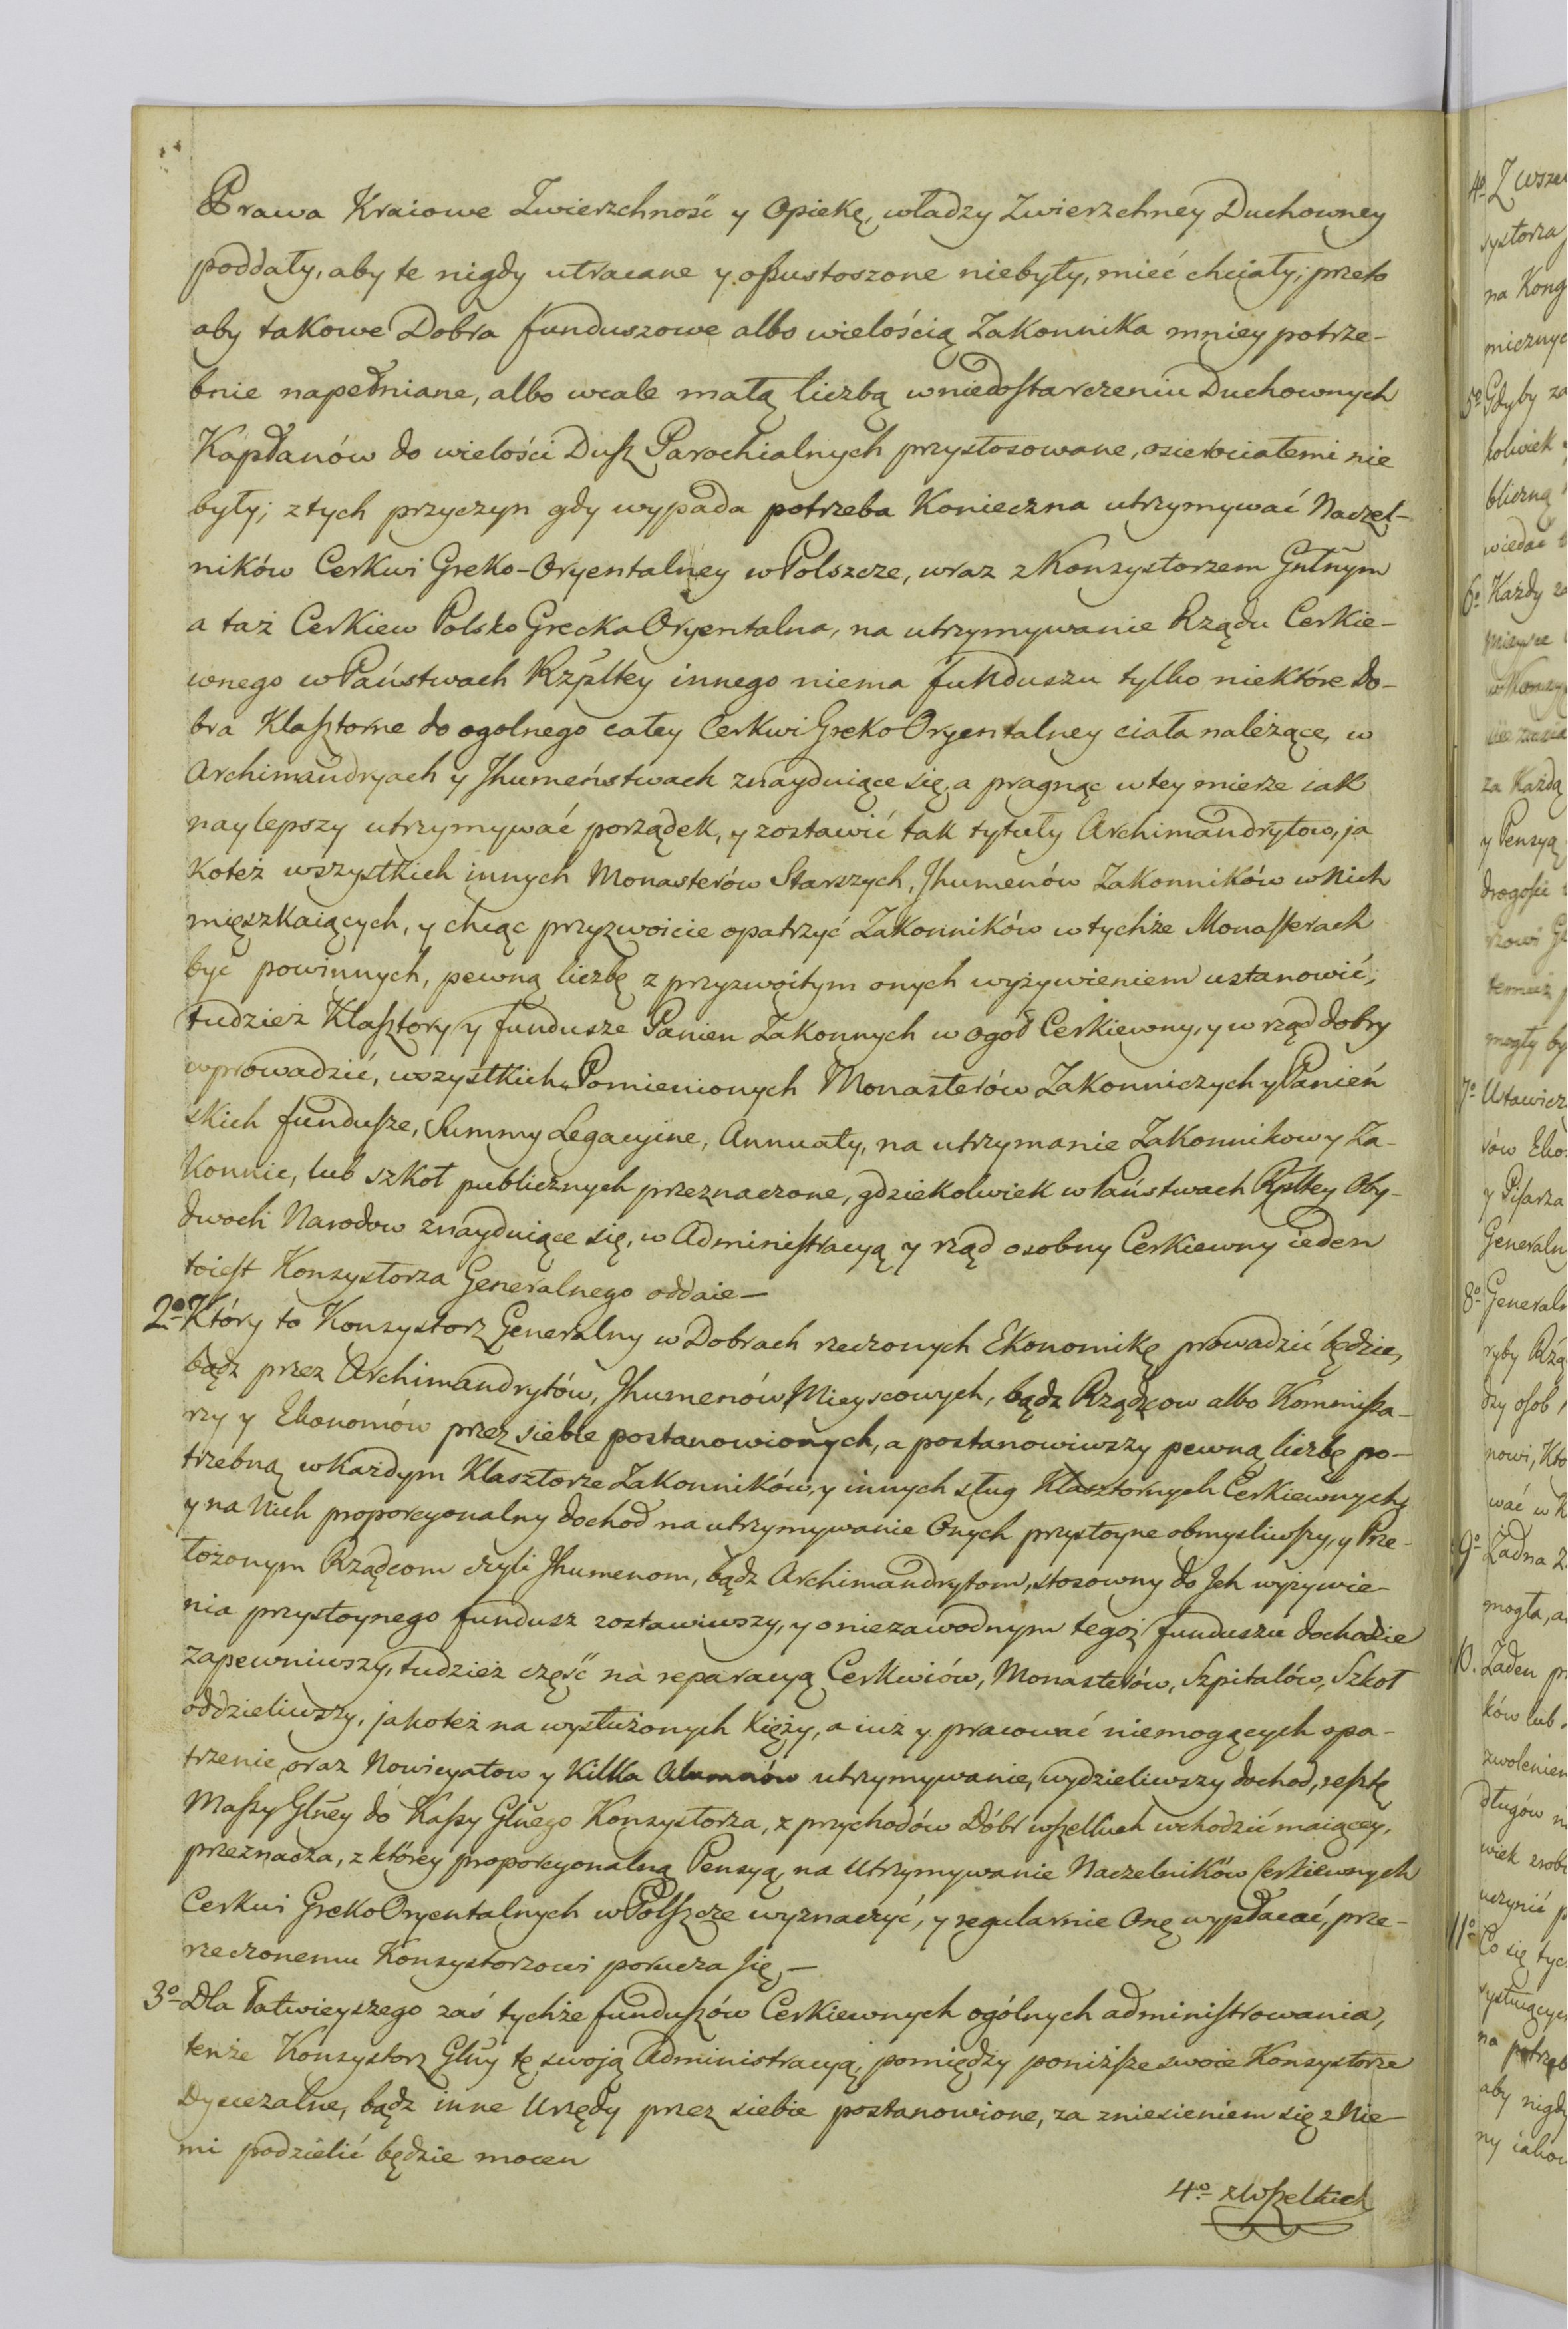 Prawa Kraiowe Zwierzchność y Opiekę, władzy Zwierzchney Duchowney
poddały, aby te nigdy utracane y opustoszone niebyły, mieć chciały; przeto
aby takowe Dobra funduszowe albo wielością Zakonnika mniey potrze-
bnie napełniane, albo wcale małą liczbą w niedostarczeniu Duchownych
Kapłanów do wielości Dusz Parochialnych przystosowane, osierociałemi nie
były; z tych przyczyn gdy wypada potrzeba Konieczna utrzymywać Naczel-
ników Cerkwi Greko-Oryentalney w Polszcze, wraz z Konzystorzem Gnłnym
a taż Cerkiew Polsko Grecka Oryentalna, na utrzymywanie Rządu Cerkie-
wnego w Państwach Rzpltey innego niema funduszu tylko niektóre Do-
bra Klasztorne do ogolnego całey Cerkwi Greko Oryentalney ciała należące, w
Archimandryach y Jhumeństwach znayduiące się, a pragnąc w tey mierze iak
naylepszy utrzymywać porządek, y zostawić tak tytuły Archimandrytow, ja
koteż wszystkich innych Monasterów Starszych, Jhumenów Zakonników w Nich
mięszkaiących, y chcąc przyzwoicie opatrzyć Zakonników w tychże Monasterach
być powinnych, pewną liczbę z przyzwoitym onych wyżywieniem ustanowić,
tudzież Klasztory y fundusze Panien Zakonnych w ogół Cerkiewny, y w rząd dobry
wprowadzić, wszystkich Pomienionych Monasterów Zakonniczych y Panień
skich fundusze, Summy Legacyine, Annuaty, na utrzymanie Zakonnikow y Za-
Konnic, lub szkoł publicznych przeznaczone, gdziekolwiek w Państwach Rpltey Oby-
dwoch Narodow znayduiące się, w Administracyą y rząd osobny Cerkiewny ieden
toiest Konzystorza Generalnego oddaie—
2º Który to Konzystorz Generalny w Dobrach rzeczonych Ekonomikę prowadzić będzie,
bądz przez Archimandrytów, Jhumenów Mieyscowych, bądz Rządcow albo Kommissa-
rzy y Ekonomów przez siebie postanowionych, a postanowiwszy pewną liczbę po-
trzebną w Każdym Klasztorze Zakonników, y innych sług Klasztornych Cerkiewnych,
y na Nich proporcyonalny dochod na utrzymywanie Onych przystoyne obmysliwszy, y Prze-
łożonym Rządcom czyli Jhumenom, bądz Archimandrytom, stosowny do Jch wyżywie-
nia przystoynego fundusz zostawiwszy, y o niezawodnym tegoż funduszu dochodzie
zapewniwszy, tudzież część na reparacyą Cerkwiów, Monasterów, Szpitalów, Szkoł
oddzieliwszy, jakoteż na wysłużonych Xięży, a iuż y pracować niemogących opa-
trzenie, oraz Nowicyatow y Kilka Alumnów utrzymywanie, wydzieliwszy dochod, resztę
Massy Głney do Kassy Głnego Konzystorza, z przychodów Dóbr wszelkich wchodzić maiącey,
przeznacza, z którey proporcyonalną Pensyą na Utrzymywanie Naczelników Cerkiewnych
Cerkwi Greko Oryentalnych w Polszcze wyznaczyć, y regularnie Onę wypłacać, prze-
rzeczonemu Konzystorzowi porucza się.—
3º Dla łatwieyszego zaś tychże funduszów Cerkiewnych ogólnych administrowania,
tenże Konzystorz Głny tę swoją Administracyą, pomiędzy poniższe swoie Konzystorze
Dyecezalne, bądz inne Urzędy przez siebie postanowione, za zniesieniem się z Nie-
mi podzielić będzie mocen
4º z wszelkich